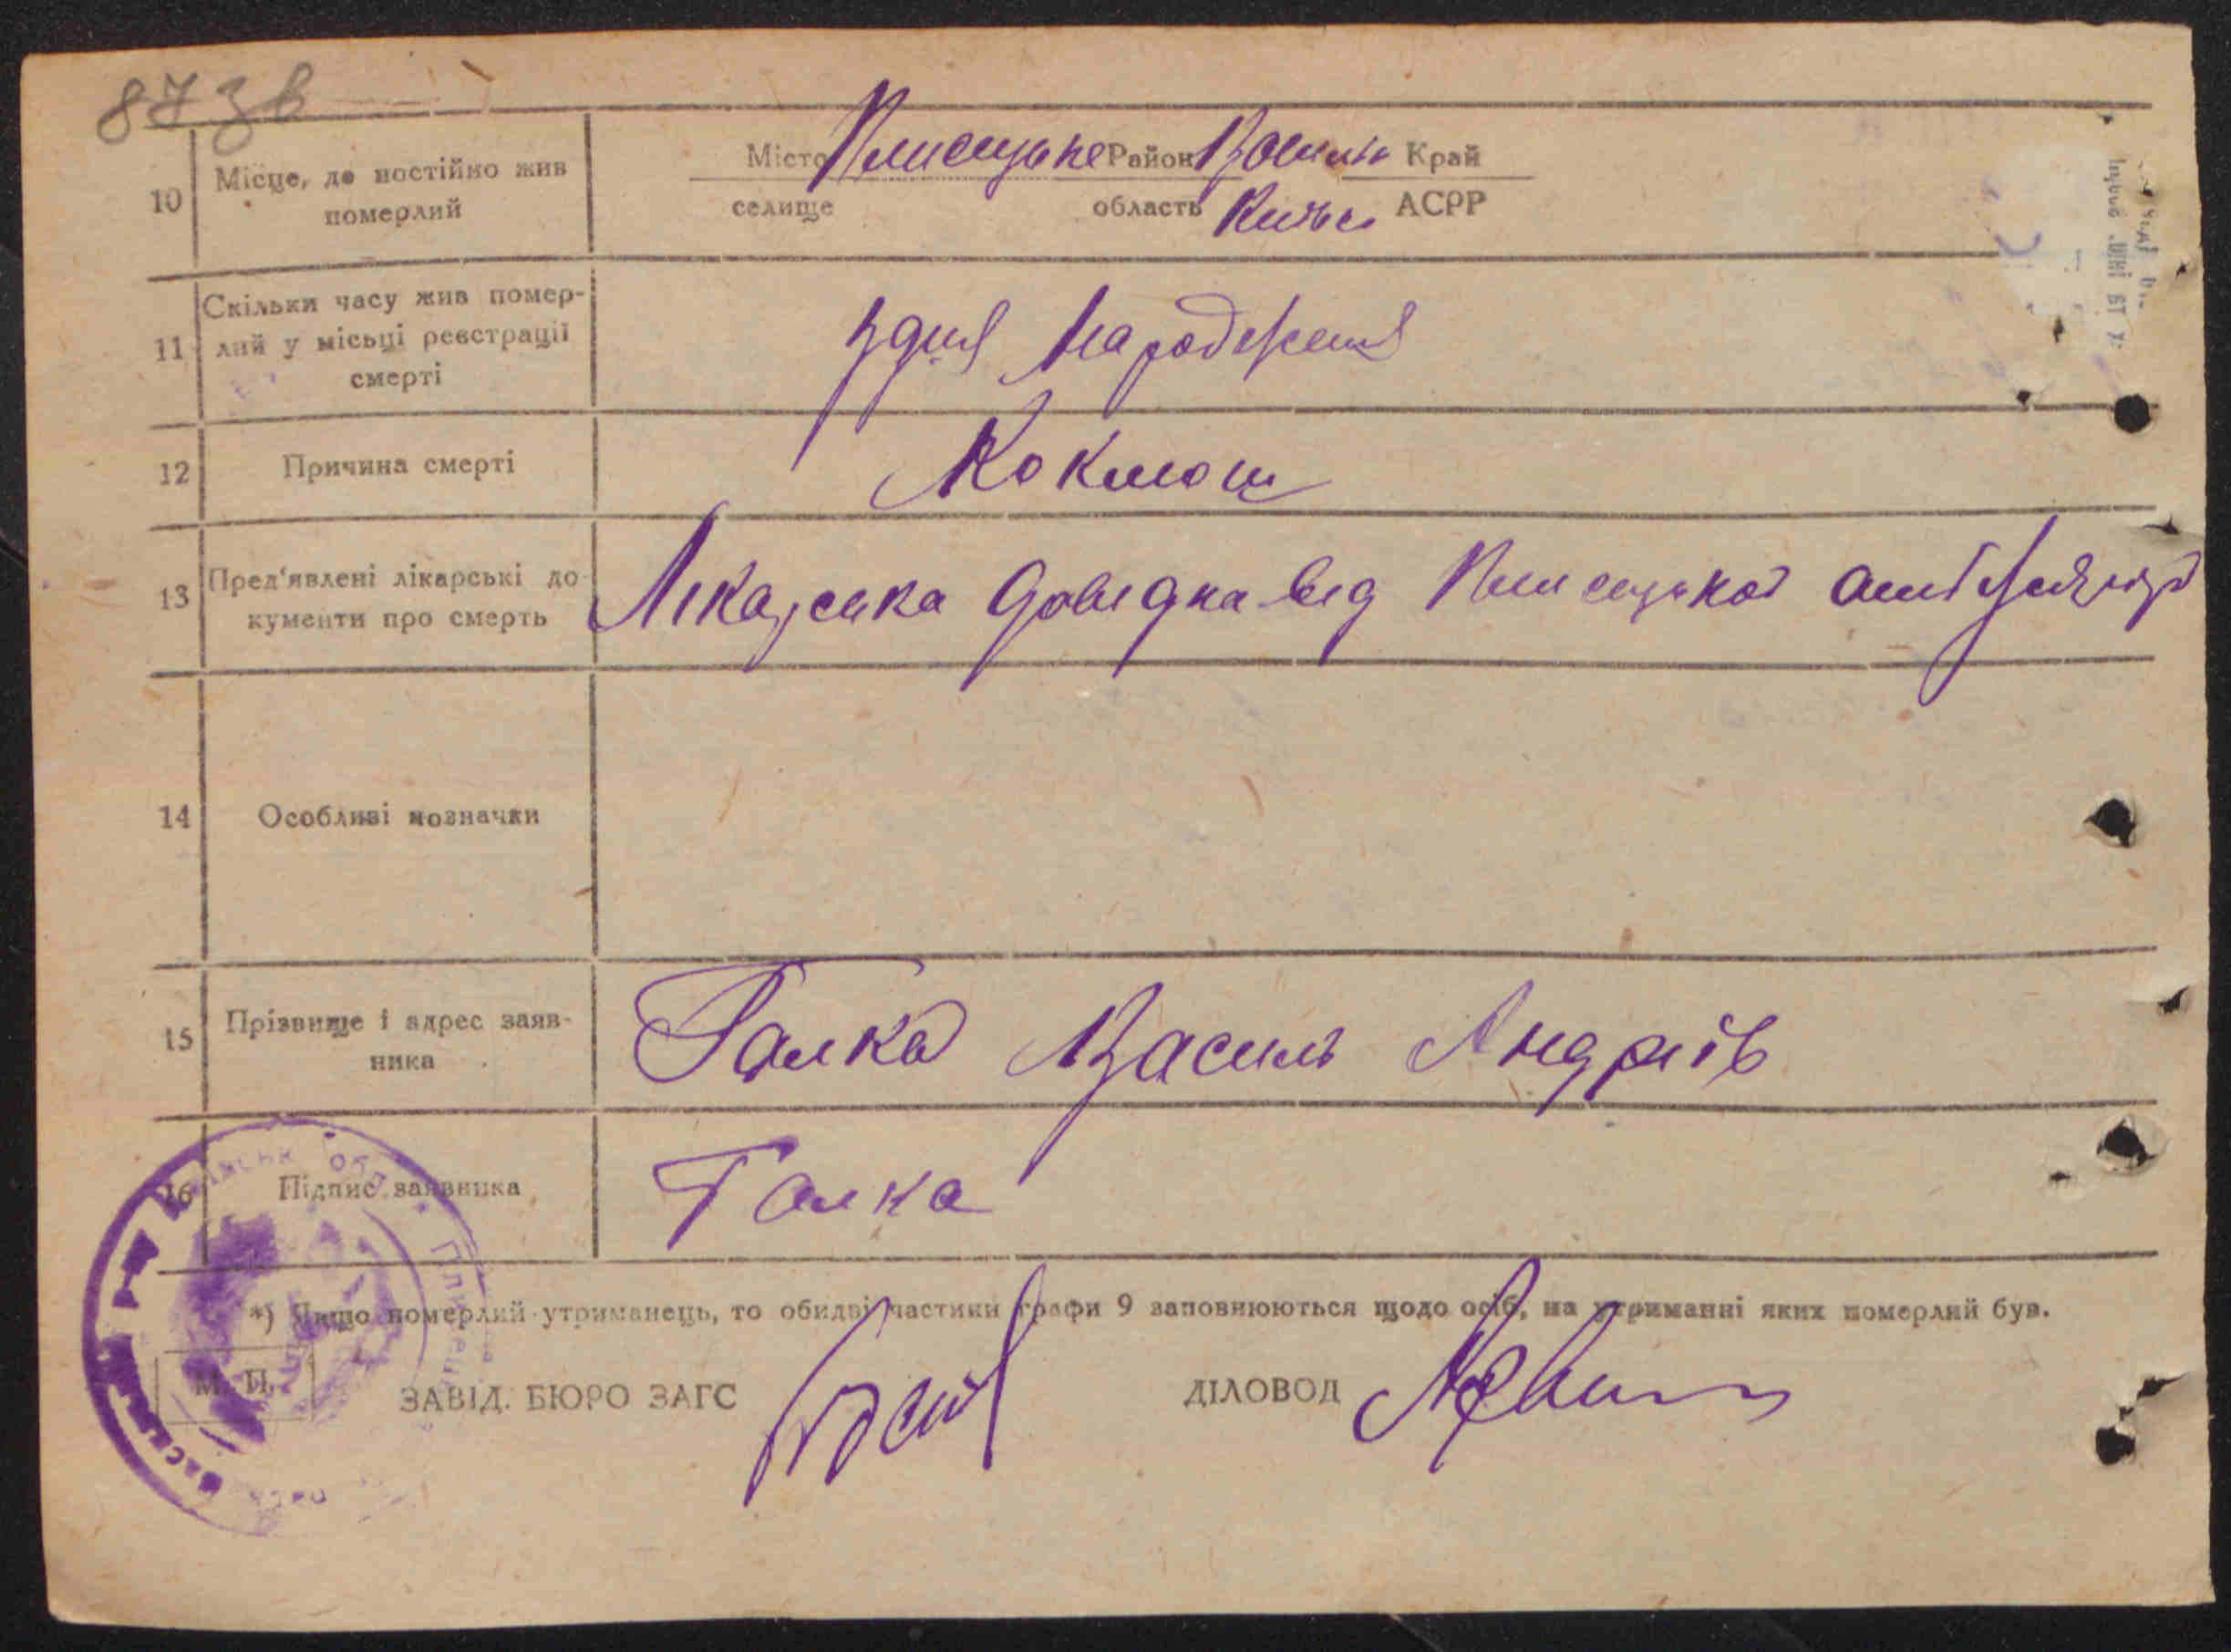 873в
10 Місце, де постійно жив Місто Плисецьке Район Васильк Край
померлий селище область Київськ АСРР
Скільки часу жив помер-
11 лий у місьці реєстрації з дня народження
смерті
12 Причина смерті Коклюш
13 Пред'явлені лікарські до- Лікарська довідка від Плисецької амбулаторії
кументи про смерть
14 Особливі позначки
15 Прізвище і адрес заяв- Галка Василь Андріїв
ника
16 Підпис заявника Галка
*) Якщо померлий утриманець, то обидві частини графи 9 заповнюються щодо осіб, на утриманні яких померлий був.
М. П.
ЗАВІД. БЮРО ЗАГС ДІЛОВОД